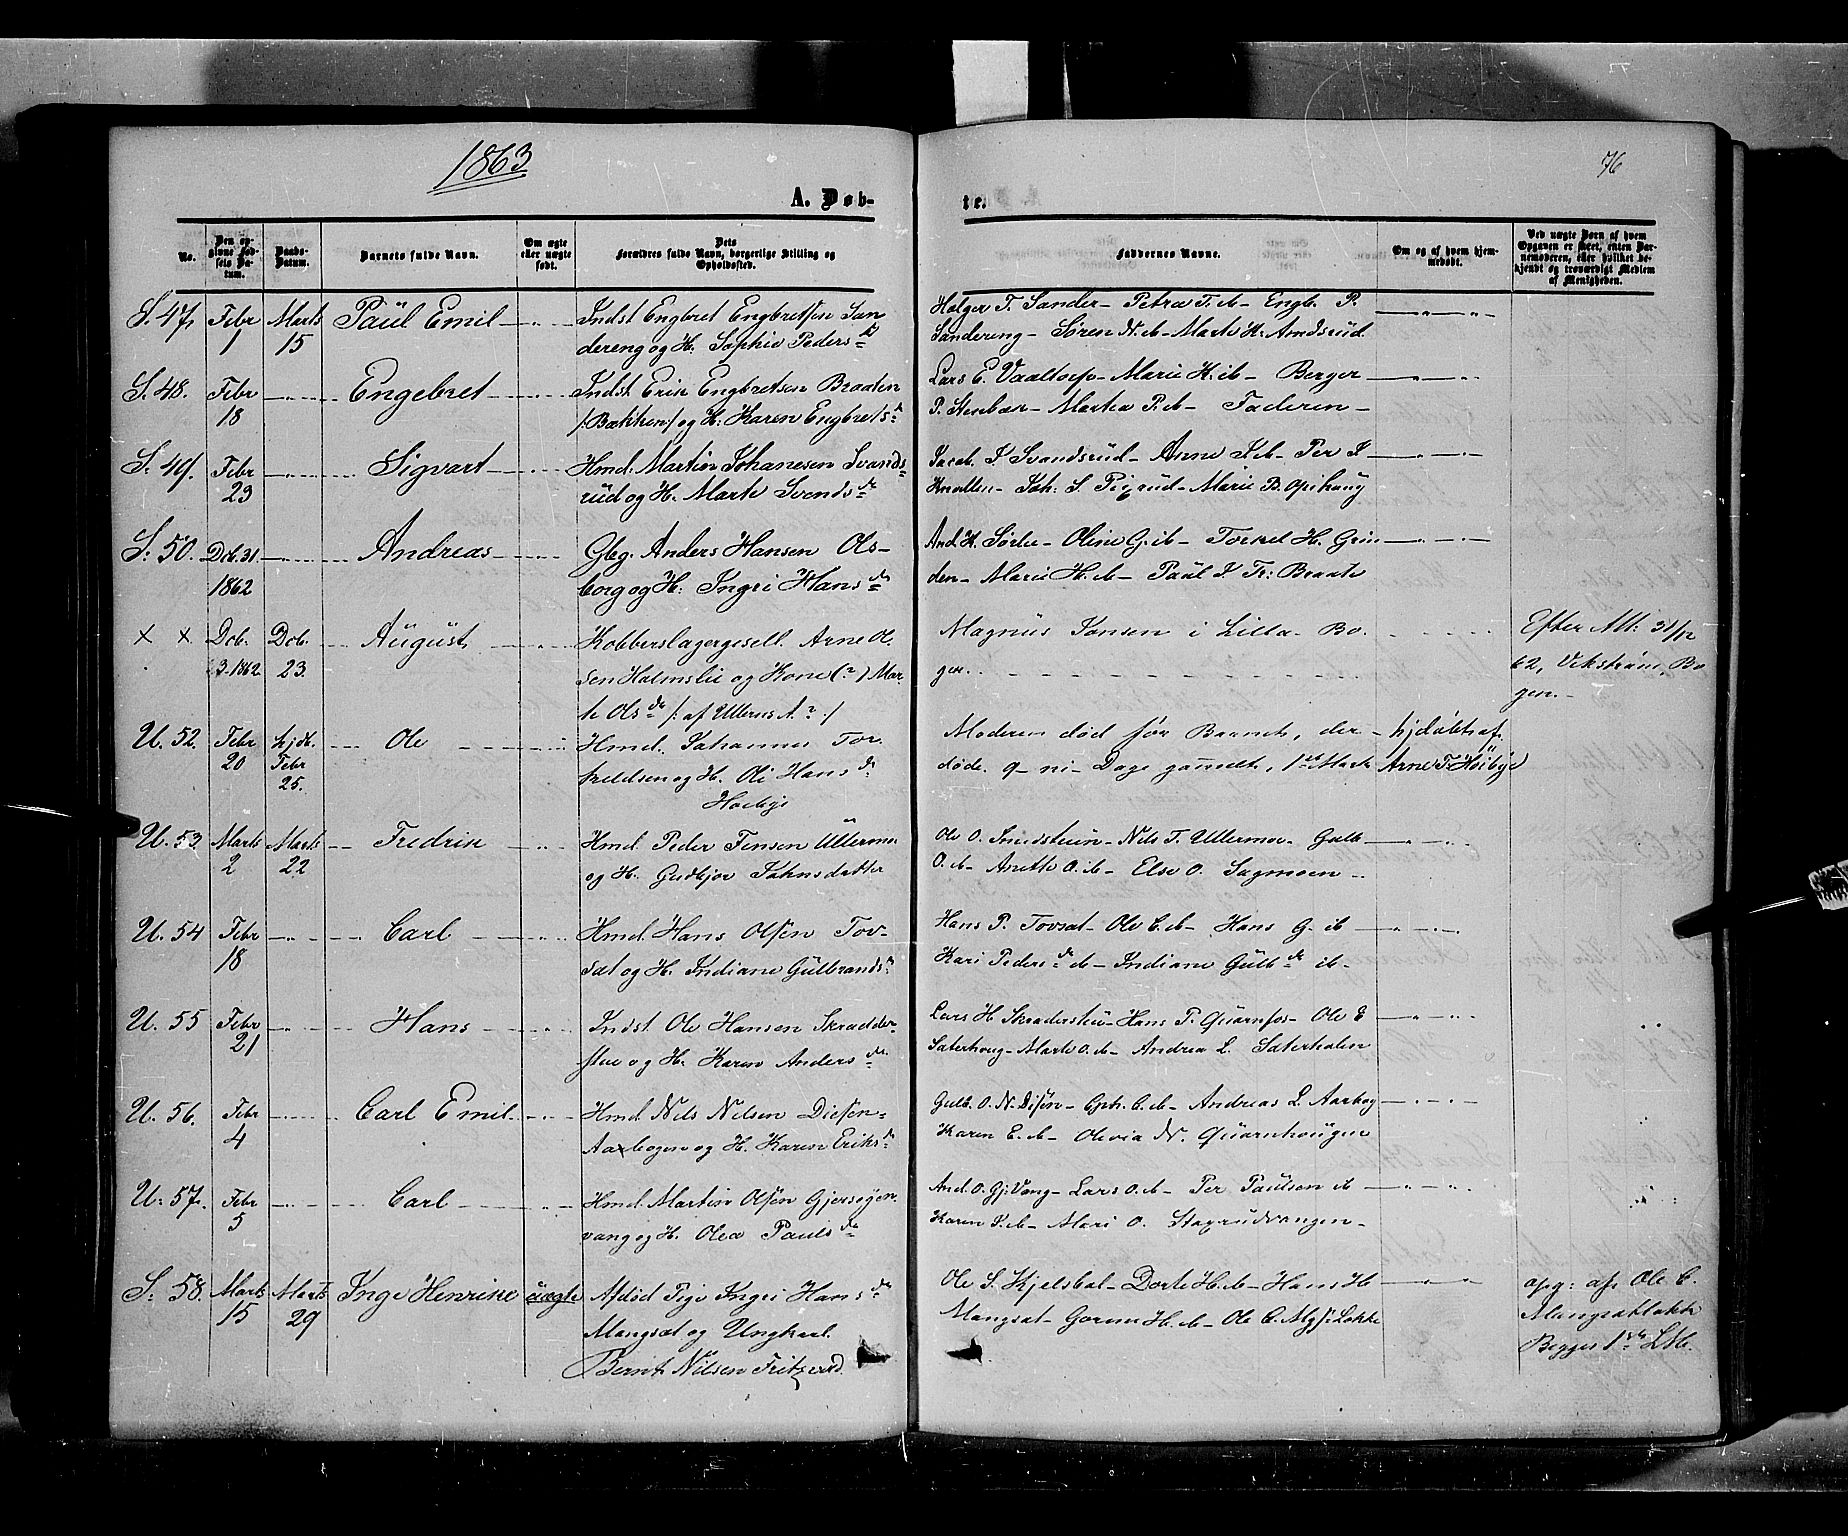 1863
76
A. Døb-
te.
No.
Den op-
givne Fød-
sels Da-
tum.
Daabs-
Datum.
Barnets fulde Navn.
Om ægte
eller uægte
født.
Dets
Forældres fulde Navn, borgerlige Stilling og
Opholdssted.
Faddernes Navne.
Om og af hvem hjem-
medøbt.
Ved uægte Børn af hvem
Opgaven er skeet, enten Bar-
nemoderen, eller hvilket be-
kjendt og troværdigt Medlem
af Menigheden.
S. 47. Febr 1 Marts 15 Paul Emil Indst Engbret Engbretsen San
dereng og H: Sophie Pedersd.
Holger T. Sander - Petra T. ib - Engb. P.
Sandereng - Søren N. ib - Marte H. Amdsrud
S. 48. Febr 18 Engebret Indst Erik Engbretsen Braaten
/:Bækken:/ og H: Karen Engbretsd.
Lars E. - Marie H. ib - Berger
P. Stenbær - Marthea P. ib - Faderen -
S. 49. Febr 23 Sigvart Hmd. Martin Johanesen Svends-
rud og H. Marte Svendsd.
Jacob J. Svendsrud - Anne J. ib - Per J
Knollen - Joh. S. - Marie B. Opihaug
S. 50. Dcb. 31 1862 Andreas Gbg. Anders Hansen Ols-
borg og H: Ingri Hansd.
And. H. Sørlie - Oline G. ib - Torkel H. Grin
den - Marie H. ib - Paul J. Tr: Braate
x x Dcb. 3. 1862 Dcb. 23. August Kobberslagergesell Arne Ol
sen Holmslie og Kone (?) Mar-
te Olsd. /: af Ullerns A.:/
Magnus Jonsen i Lilla Bo
gen.
Efter Att: 31/12
62, Vekstrøm, Bo
gen.
U. 52. Febr 20 hjdb. Febr 25. Ole Hmd. Johannes Tor-
keldsen og H. Oli Hansd.
Høibye
Moderen død før Barnet, der
døde 9 - ni - Dage gammelt, 1ste Marts
hjdøbt af
Arne T. Høibye
U. 53 Marts 2 Marts 22 Fredrik Hmd. Peder Jensen Ullermoe
og H. Gudbjør Johnsdatter
Ole O. - Nils T. Ullermoe - Gulb
O. ib - Anette O. ib - Else O. Sagmoen
U. 54 Febr 18 Carl Hmd. Hans Olsen Tov-
sæt og H. Indiane Gulbrandsd.
Hans P. Tovsæt - Ole C. ib - Hans G. ib
Kari Pedersd. ib - Indiane Gulbd. ib -
U. 55 Febr 21 Hans Indst. Ole Hansen Skrædder-
stue og H. Karen Andersd.
Lars H Skræderstue - Hans P. Quærnfos - Ole E
Saterhoug - Marte O. ib - Andrea L. Saterhalen
U. 56. Febr 4 Carl Emil Hmd. Nils Nilsen Diesen-
Aabogen og H. Karen Eriksd.
Gulb. O. N. Disen - Cph. C. ib - Andreas L. Aabog
Karen E. ib - Olevia N. Quærnhougen
U. 57. Febr 5 Carl Hmd. Martin Olsen Gjersøgen-
vang og H. Olea Paulsd.
And. O. Gj: Vang - Lars O. ib - Per Paulsen ib
Karen J. ib - Mari O. Staxrudvangen -
S. 58. Marts 15 Marts 29 Inge Henrike uægte Afdød Pige Ingri Hansd.
Mangsæt og Ungkarl
Bernt Nilsen
Ole S. Kjelsbal - Dorte H. ib - Hans H
Mangsæt - H. ib - Ole C. Løkke
opg: af Ole C.
Begges 1ste LM.